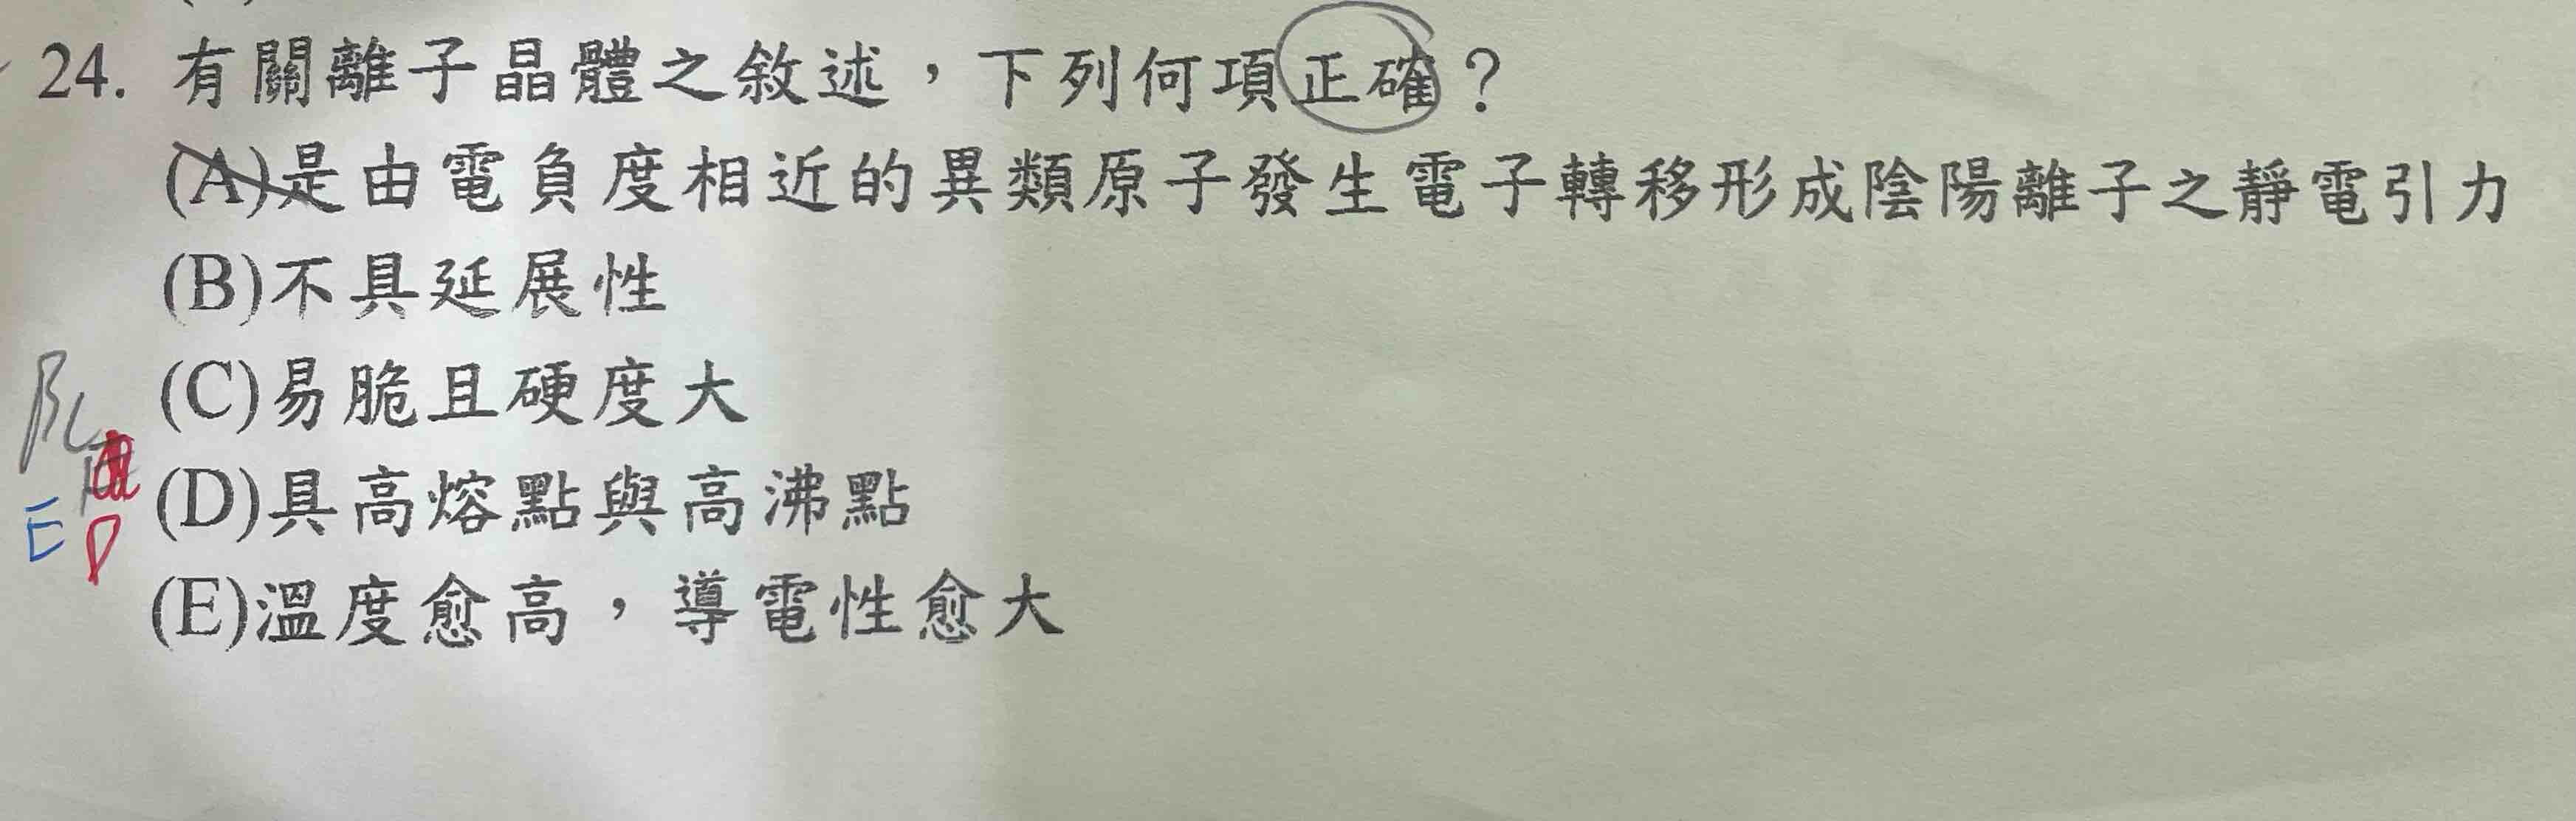 24. 有關離子晶體之敘述，下列何項正確？
(A)是由電負度相近的異類原子發生電子轉移形成陰陽離子之靜電引力
(B)不具延展性
(C)易脆且硬度大
(D)具高熔點與高沸點
(E)溫度愈高，導電性愈大
BC
E D